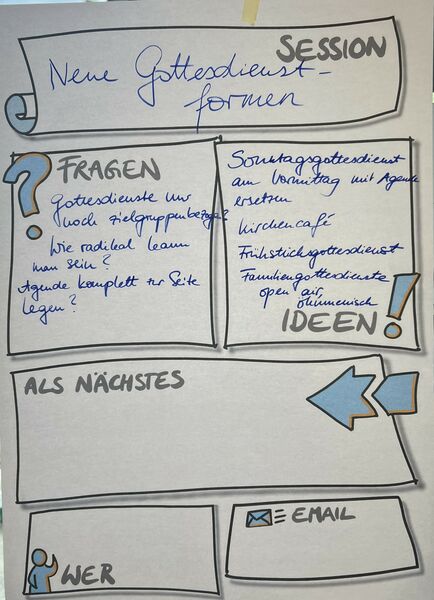 SESSION
Neue Gottesdienst-
formen
FRAGEN
Gottesdienste nur
noch zielgruppenbezogen?
Wie radikal kann
man sein?
Agende komplett zur Seite
legen?
Sonntagsgottesdienst
am Vormittag mit Agende
ersetzen
Kirchencafé
Frühstücksgottesdienst
Familiengottesdienste
open air,
ökumenisch
IDEEN
ALS NÄCHSTES
WER
EMAIL